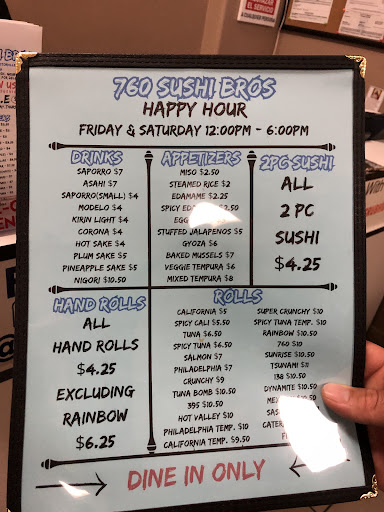 760 SUSHI BROS
HAPPY HOUR
FRIDAY & SATURDAY 12:00PM - 6:00PM
DRINKS
SAPORRO $7
ASAHI $7
SAPORRO(SMALL) $4
MODELO $4
KIRIN LIGHT $4
CORONA $4
HOT SAKE $4
PLUM SAKE $5
PINEAPPLE SAKE $5
NIGORI $10.50
APPETIZERS
MISO $2.50
STEAMED RICE $2
EDAMAME $2.25
SPICY
STUFFED JALAPENOS $5
GYOZA $6
BAKED MUSSELS $7
VEGGIE TEMPURA $6
MIXED TEMPURA $8
2PC SUSHI
ALL
2 PC
SUSHI
$4.25
HAND ROLLS
ALL
HAND ROLLS
$4.25
EXCLUDING
RAINBOW
$6.25
ROLLS
CALIFORNIA $5
SPICY CALI $5.50
TUNA $6.50
SPICY TUNA $6.50
SALMON $7
PHILADELPHIA $7
CRUNCHY $9
TUNA BOMB $10.50
395 $10.50
HOT VALLEY $10
PHILADELPHIA TEMP. $10
CALIFORNIA TEMP. $9.50
SUPER CRUNCHY $10
SPICY TUNA TEMP. $10
RAINBOW $10.50
760 $10
SUNRISE $10.50
TSUNAMI $11
138 $10.50
DYNAMITE $10.50
DINE IN ONLY